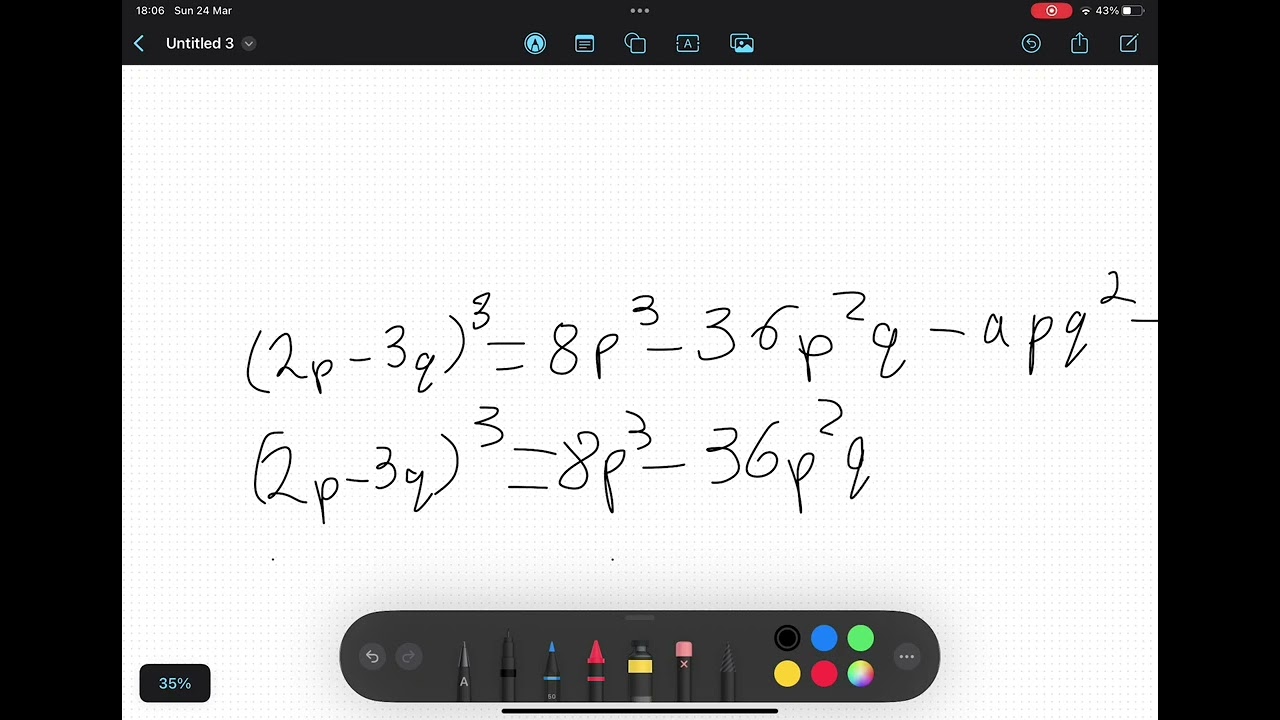 18:06 Sun 24 Mar
43%
Untitled 3
A
(2p-3q)³=8p³-36p²q-apq²-
(2p-3q)³=8p³-36p²q
A
50
35%